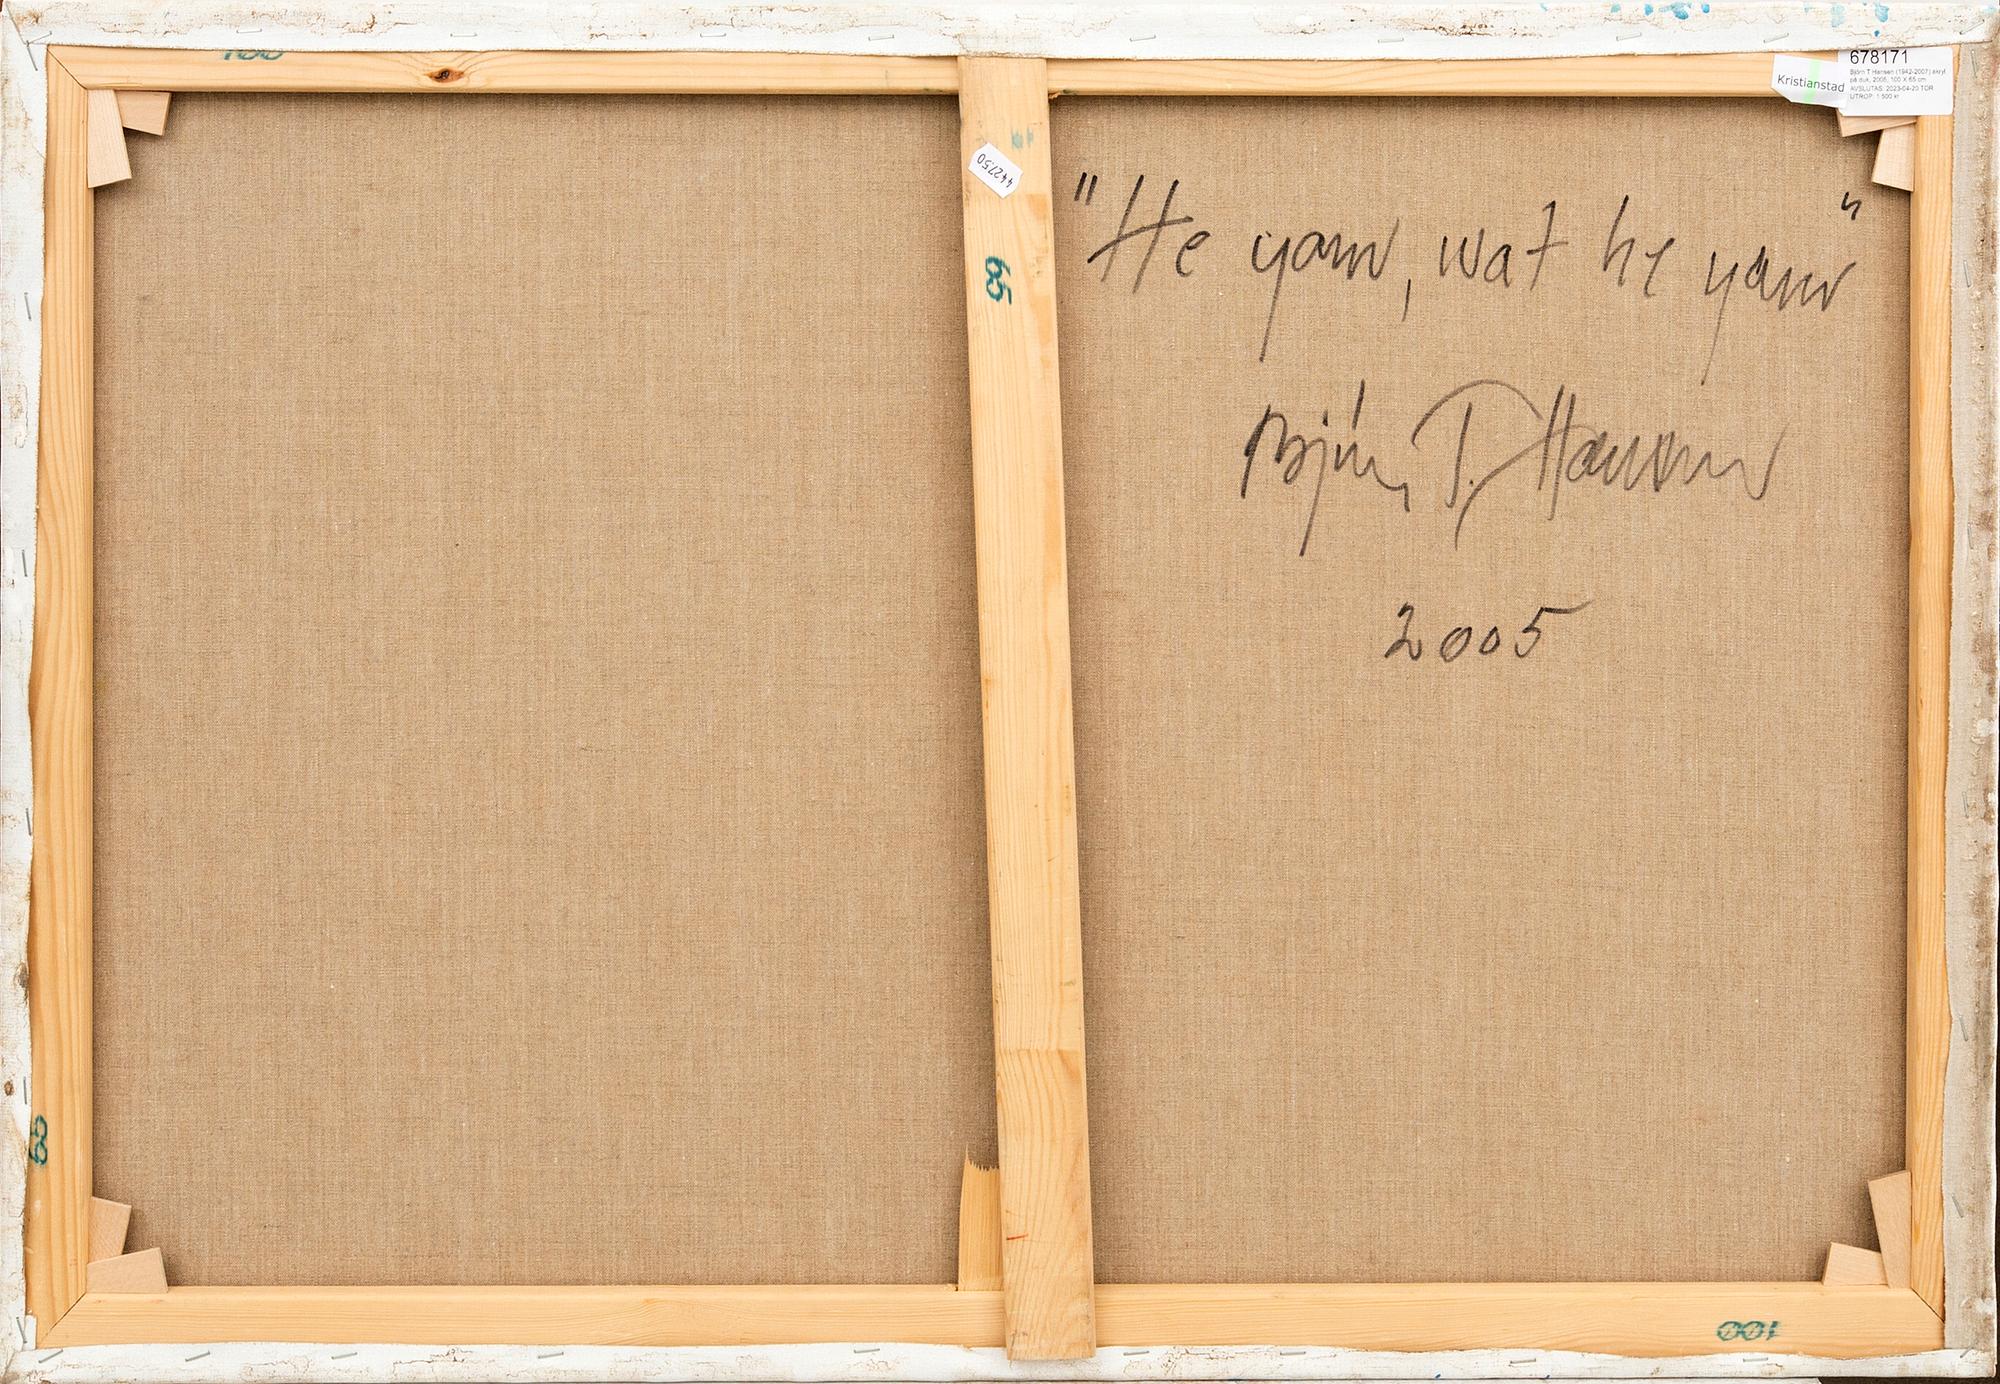 100
678171
Björn T Hansen (1942-2007) akryl
på duk, 2005, 100 X 65 cm
AVSLUTAS: 2023-04-20 TOR
UTROP: 1 500 kr
Kristianstad
442750
65
"He yam, wat he yam"
Björn T. Hansen
2005
65
100